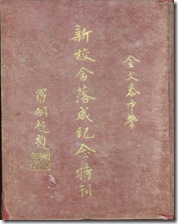 金文泰中學
新校舍落成紀念特刊